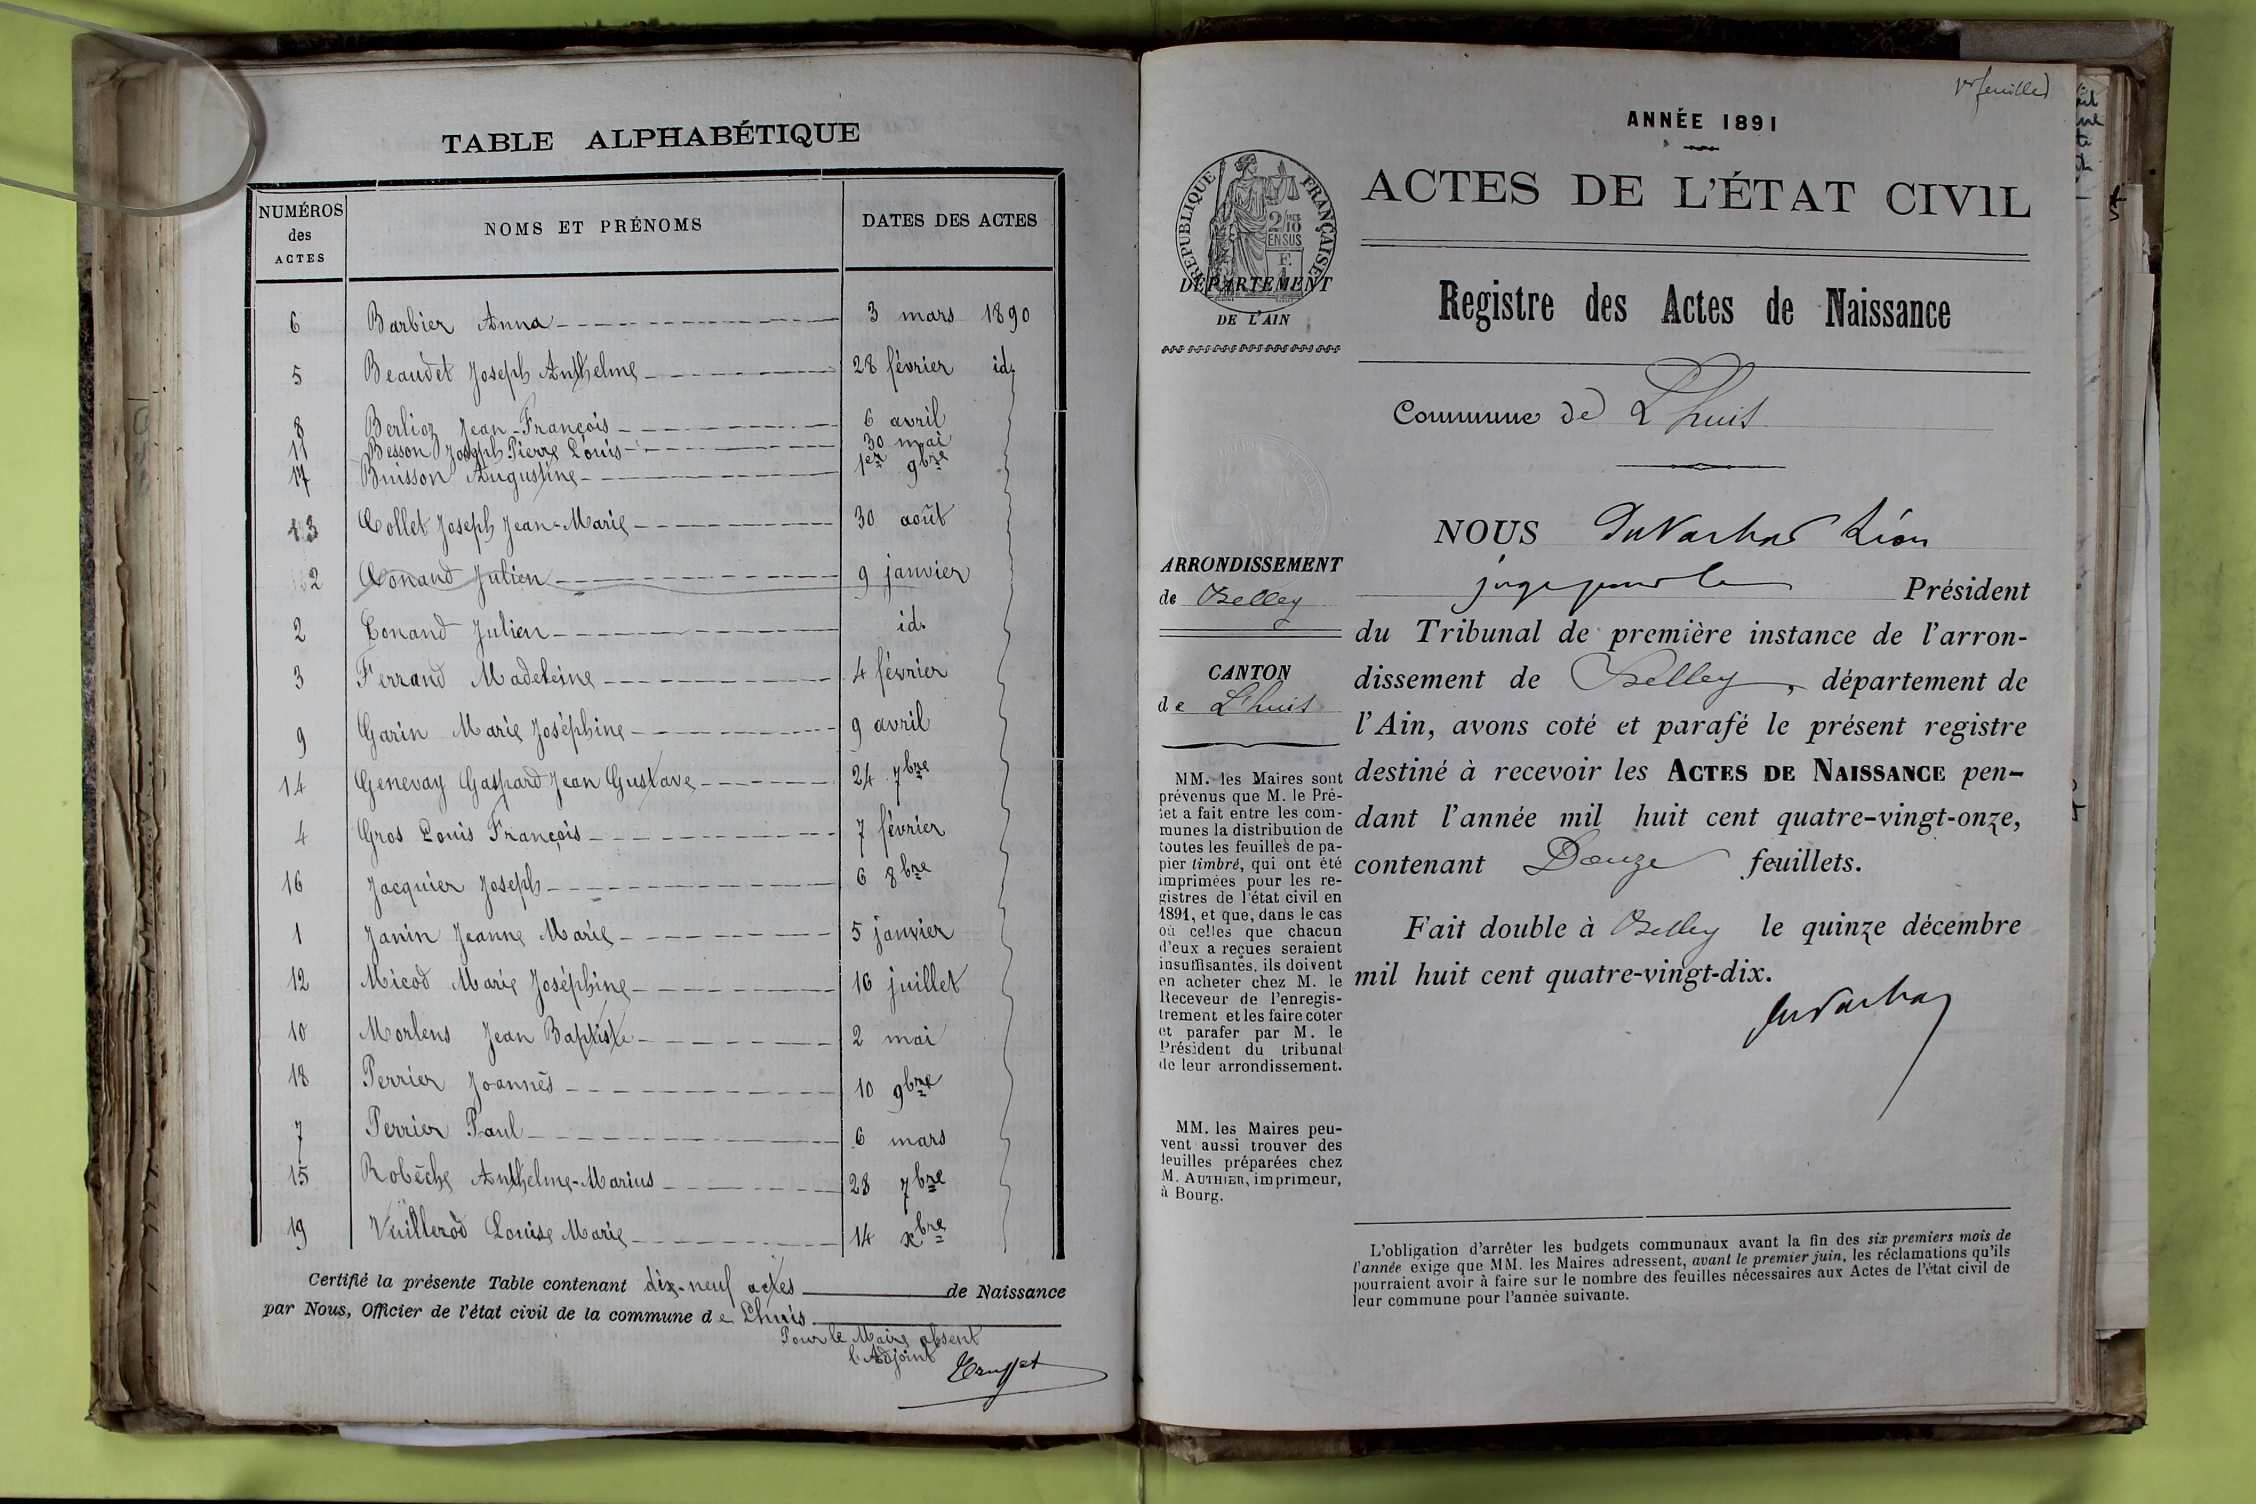 TABLE ALPHABÉTIQUE
NUMÉROS des ACTES NOMS ET PRÉNOMS DATES DES ACTES
6 Barbier Anna 3 mars 1890
5 Beaudet Joseph Anthelme 28 février id.
8 Berlioz Jean-François 6 avril
11 Besson Joseph Pierre Louis 30 mai
17 Buisson Augustine 1er 9bre
13 Collet Joseph Jean-Marie 30 août
2 Conand Julien 9 janvier
2 Conand Julien id.
3 Ferrand Madeleine 4 février
9 Garin Marie Joséphine 9 avril
14 Genevay Gaspard Jean Gustave 24 7bre
4 Gros Louis François 7 février
16 Jacquier Joseph 6 8bre
1 Janin Jeanne Marie 5 janvier
12 Micod Marie Joséphine 16 juillet
10 Morlens Jean Baptiste 2 mai
18 Perrier Joannès 10 9bre
7 Perrier Paul 6 mars
15 Robèche Anthelme-Marius 28 7bre
19 Vuillerod Louise Marie 14 xbre
Certifié la présente Table contenant dix-neuf actes de Naissance
par Nous, Officier de l'état civil de la commune de Lhuis
Pour le Maire absent
l'Adjoint
1er feuillet
ANNÉE 1891
ACTES DE L'ÉTAT CIVIL
RÉPUBLIQUE FRANÇAISE
2/10 EN SUS
DÉPARTEMENT
DE L'AIN
Registre des Actes de Naissance
Commune de Lhuis
ARRONDISSEMENT
de Belley
CANTON
de Lhuis
MM. les Maires sont
prévenus que M. le Pré-
fet a fait entre les com-
munes la distribution de
toutes les feuilles de pa-
pier timbré, qui ont été
imprimées pour les re-
gistres de l'état civil en
1891, et que, dans le cas
où celles que chacun
d'eux a reçues seraient
insuffisantes, ils doivent
en acheter chez M. le
Receveur de l'enregis-
trement et les faire coter
et parafer par M. le
Président du tribunal
de leur arrondissement.
MM. les Maires peu-
vent aussi trouver des
feuilles préparées chez
M. AUTHIER, imprimeur,
à Bourg.
NOUS Léon
juge pour le Président
du Tribunal de première instance de l'arron-
dissement de Belley, département de
l'Ain, avons coté et parafé le présent registre
destiné à recevoir les ACTES DE NAISSANCE pen-
dant l'année mil huit cent quatre-vingt-onze,
contenant Douze feuillets.
Fait double à Belley le quinze décembre
mil huit cent quatre-vingt-dix.
L'obligation d'arrêter les budgets communaux avant la fin des six premiers mois de
l'année exige que MM. les Maires adressent, avant le premier juin, les réclamations qu'ils
pourraient avoir à faire sur le nombre des feuilles nécessaires aux Actes de l'état civil de
leur commune pour l'année suivante.